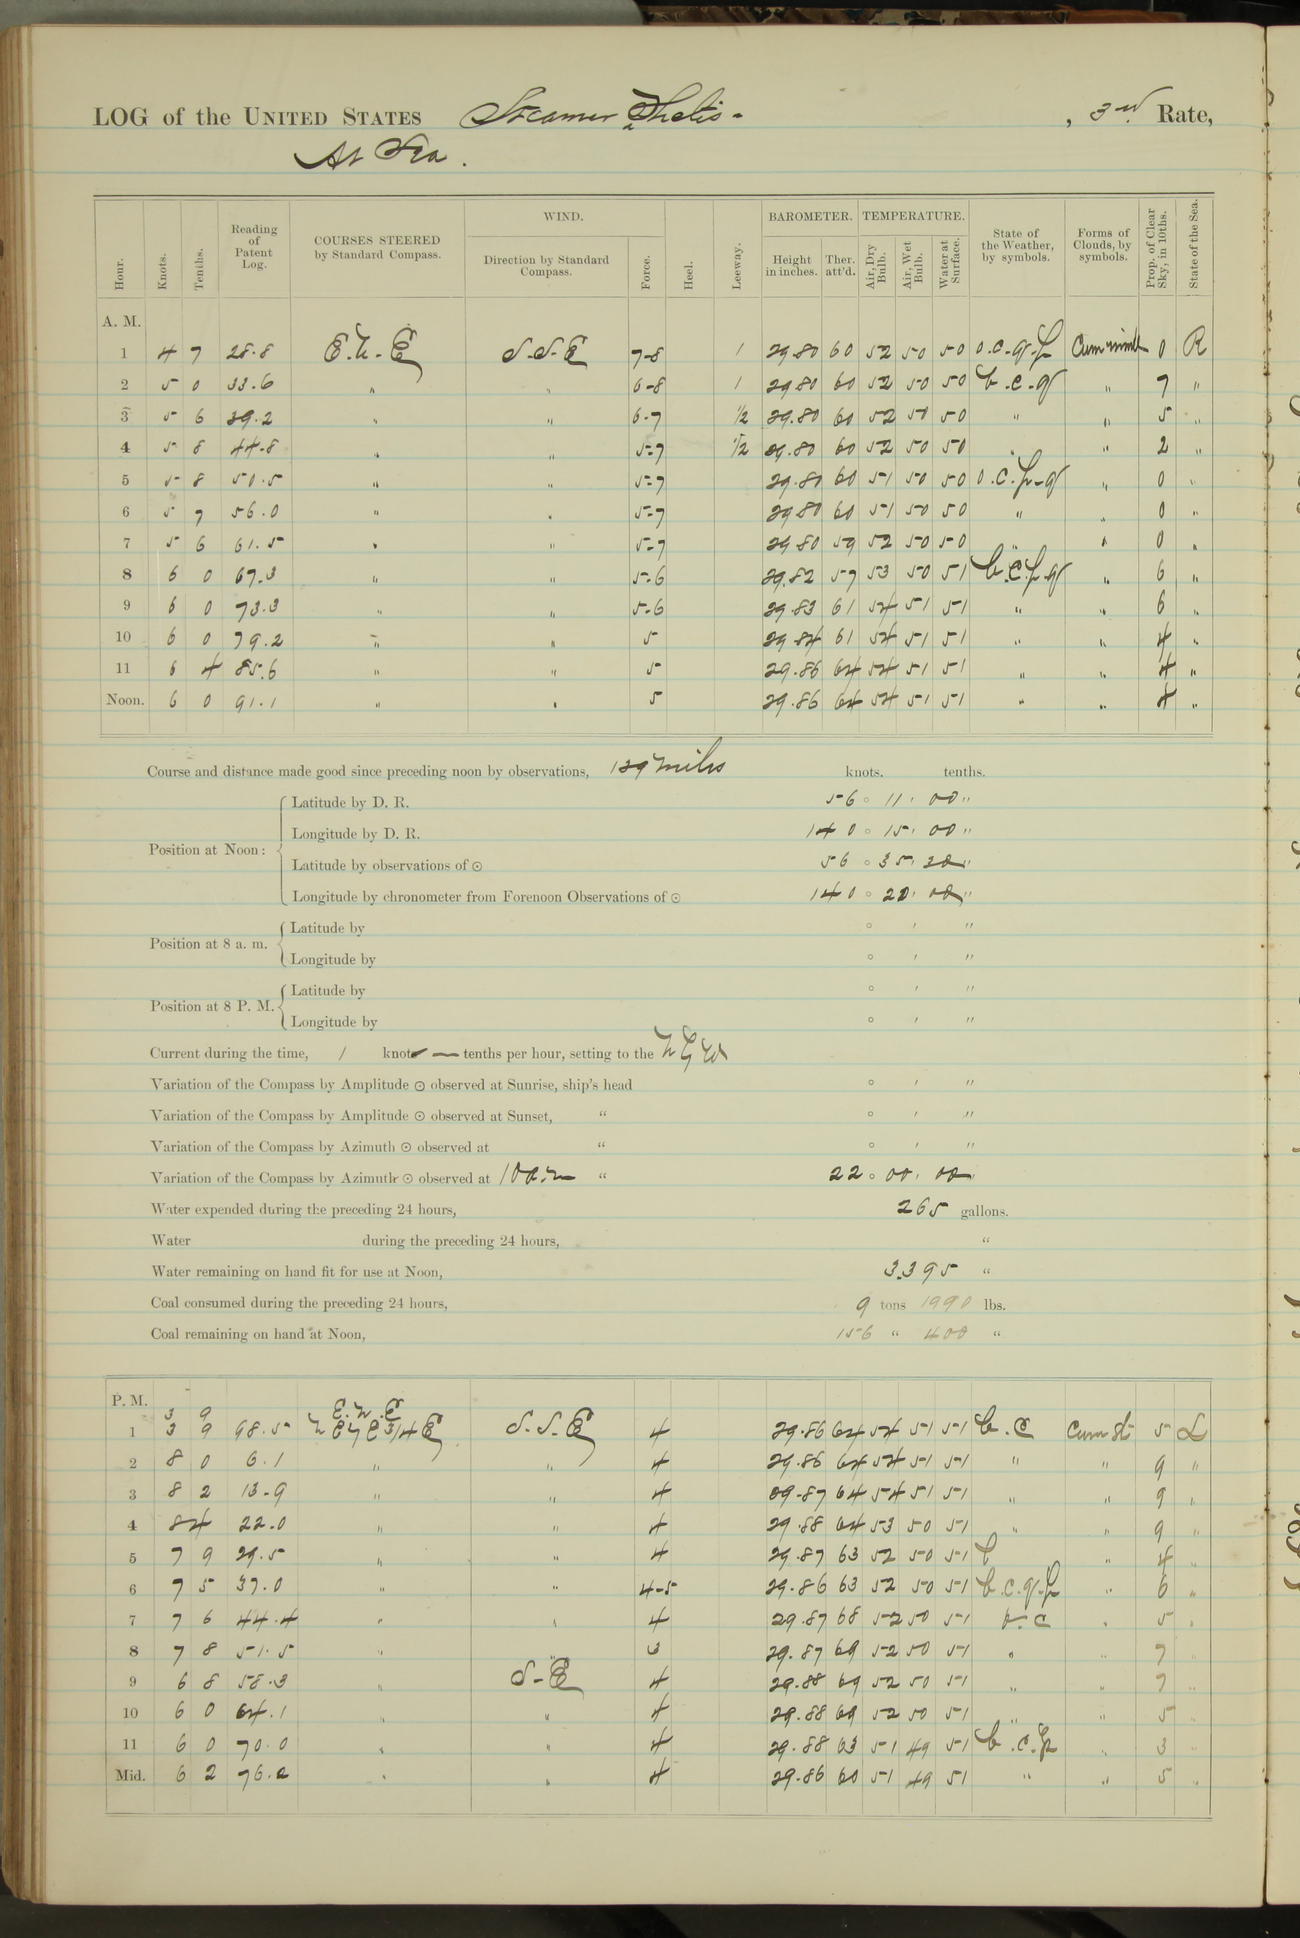 LOG of the UNITED STATES Steamer Thetis , 3rd Rate,
At Sea.
Hour. Knots. Tenths. Reading of Patent Log. COURSES STEERED by Standard Compass. WIND. Direction by Standard Compass. Force. Heel. Leeway. BAROMETER. Height in inches. Ther. att'd. TEMPERATURE. Air, Dry Bulb. Air, Wet Bulb. Water at Surface. State of the Weather, by symbols. Forms of Clouds, by symbols. Prop. of Clear Sky, in 10ths. State of the Sea.
A. M.
1 4 7 28.8 E.N.E S.S.E 7-8 1 29.80 60 52 50 50 o.c.q.p 0 R
2 5 0 33.6 " " 6-8 1 29.80 60 52 50 50 b.c.q " 7 "
3 5 6 39.2 " " 6-7 1/2 29.80 60 52 51 50 " " 5 "
4 5 8 44.8 " " 5-7 1/2 29.80 60 52 50 50 " " 2 "
5 5 8 50.5 " " 5-7 29.80 60 51 50 50 o.c.p-q " 0 "
6 5 7 56.0 " " 5-7 29.80 60 51 50 50 " " 0 "
7 5 6 61.5 " " 5-7 29.80 59 52 50 50 " " 0 "
8 6 0 67.3 " " 5-6 29.82 57 53 50 51 b.c.p.q " 6 "
9 6 0 73.3 " " 5-6 29.83 61 54 51 51 " " 6 "
10 6 0 79.2 " " 5 29.84 61 54 51 51 " " 4 "
11 6 4 85.6 " " 5 29.86 64 54 51 51 " " 4 "
Noon. 6 0 91.1 " " 5 29.86 64 54 51 51 " " 4 "
Course and distance made good since preceding noon by observations, 129 miles knots. tenths.
Position at Noon:
Latitude by D. R. 56 ° 11 ' 00 "
Longitude by D. R. 140 ° 15 ' 00 "
Latitude by observations of ⊙ 56 ° 35 ' 20 "
Longitude by chronometer from Forenoon Observations of ⊙ 140 ° 20 ' 00 "
Position at 8 a. m.
Latitude by ° ' "
Longitude by ° ' "
Position at 8 P. M.
Latitude by ° ' "
Longitude by ° ' "
Current during the time, 1 knot — tenths per hour, setting to the N by W
Variation of the Compass by Amplitude ⊙ observed at Sunrise, ship's head ° ' "
Variation of the Compass by Amplitude ⊙ observed at Sunset, " ° ' "
Variation of the Compass by Azimuth ⊙ observed at " ° ' "
Variation of the Compass by Azimuth ⊙ observed at 10 a.m " 22 ° 00 ' 00
Water expended during the preceding 24 hours, 265 gallons.
Water during the preceding 24 hours, "
Water remaining on hand fit for use at Noon, 3.395 "
Coal consumed during the preceding 24 hours, 9 tons 1990 lbs.
Coal remaining on hand at Noon, 156 " 400 "
P. M.
3 9 E.N.E
1 3 9 98.5 N E by E 3/4 E S.S.E 4 29.86 64 54 51 51 b.c Cum St 5 L
2 8 0 6.1 " " 4 29.86 64 54 51 51 " " 9 "
3 8 2 13.9 " " 4 29.87 64 54 51 51 " " 9 "
4 8 4 22.0 " " 4 29.88 64 53 50 51 " " 9 "
5 7 9 29.5 " " 4 29.87 63 52 50 51 " 4 "
6 7 5 37.0 " " 4-5 29.86 63 52 50 51 b.c.q.p " 6 "
7 7 6 44.4 " " 4 29.87 68 52 50 51 b.c " 5 "
8 7 8 51.5 " " 3 29.87 69 52 50 51 " 7 "
9 6 8 58.3 " S-E 4 29.88 69 52 50 51 " " 7 "
10 6 0 64.1 " " 4 29.88 69 52 50 51 " " 5 "
11 6 0 70.0 " " 4 29.88 63 51 49 51 b.c.p " 3 "
Mid. 6 2 76.2 " " 4 29.86 60 51 49 51 " " 5 "